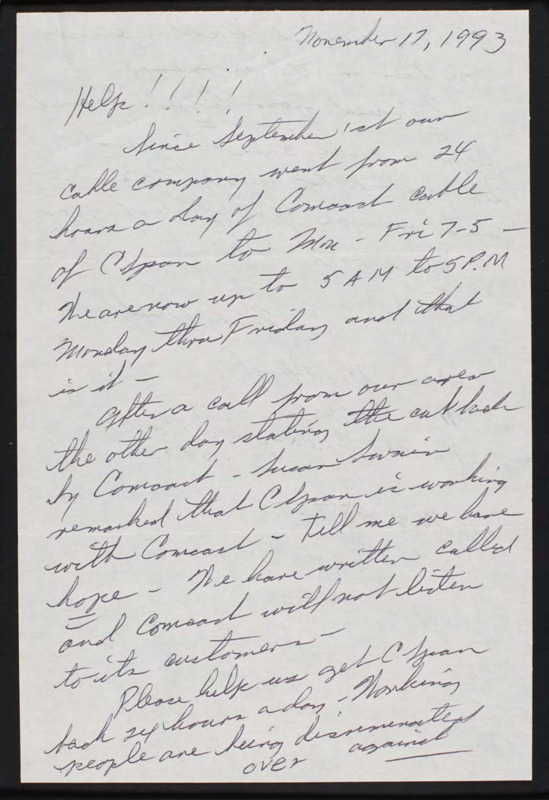 November 17, 1993
Help!!!!
Since September 1st our
cable company went from 24
hours a day of Comcast cable
of CSpan to Mon - Fri 7-5 -
We are now up to 5 AM to 5 P.M
Monday thru Friday and that
is it -
After a call from our area
the other day stating the cut back
by Comcast - Susan Swain
remarked that CSpan is working
with Comcast - Tell me we have
hope - We have written called
and Comcast will not listen
to its customers -
Please help us get CSpan
back 24 hours a day - Working
people are being discriminated
against
over